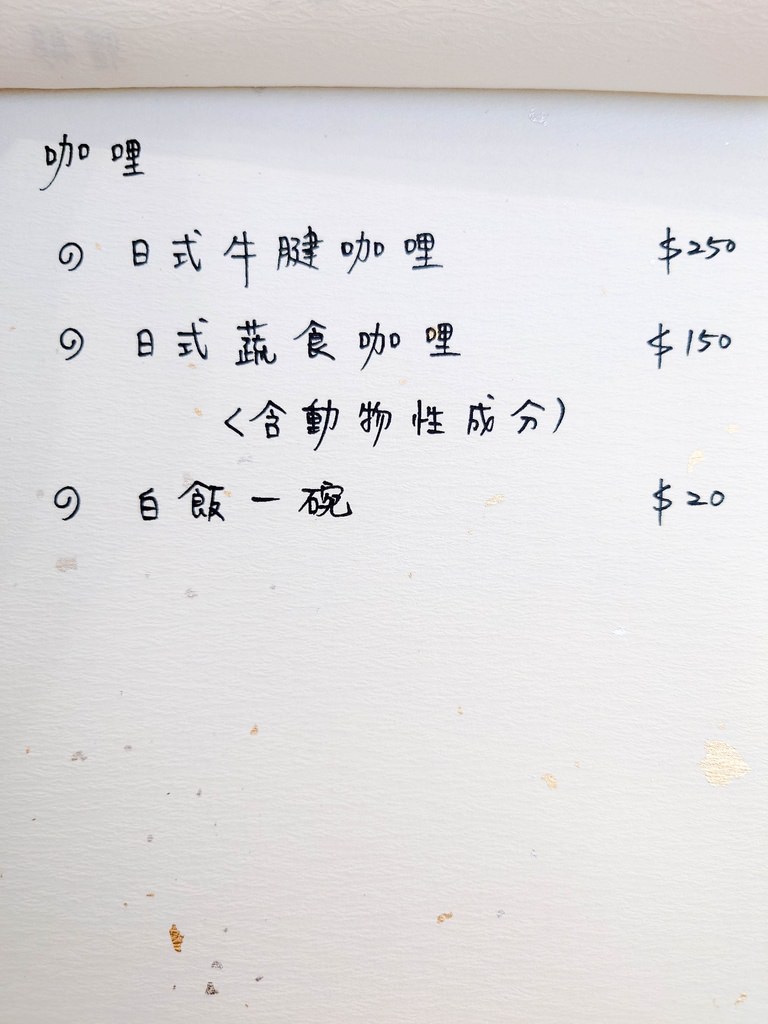 咖哩
の 日式牛腱咖哩 $250
の 日式蔬食咖哩 $150
<含動物性成分)
の 白飯一碗 $20